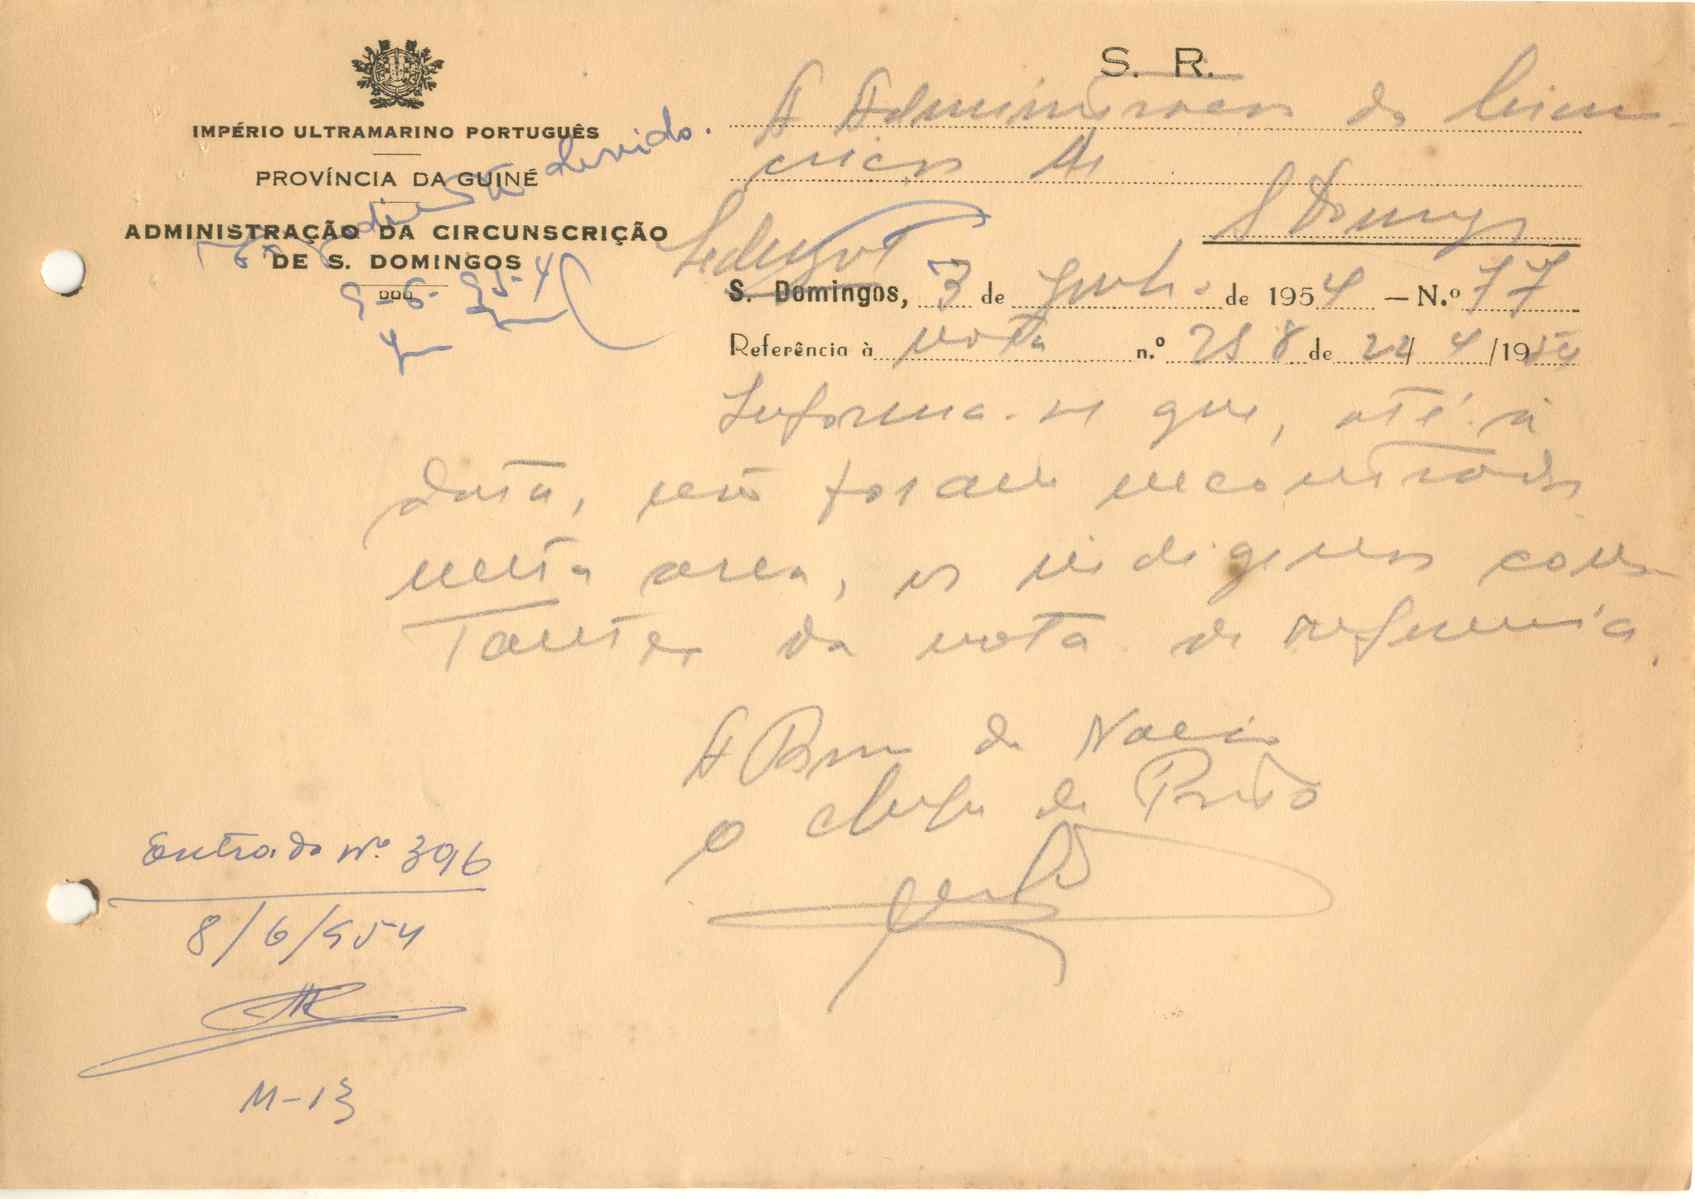 S. R.
IMPÉRIO ULTRAMARINO PORTUGUÊS
PROVÍNCIA DA GUINÉ
ADMINISTRAÇÃO DA CIRCUNSCRIÇÃO
DE S. DOMINGOS
devido.
9-6-954
A Administração da Circuns-
crição de
S Domingos
S. Domingos, 3 de Junho de 1954 — N.º 77
Referência à nota n.º 258 de 22/4/1954
Informa-se que, até à
data, não foram encontrados
nesta area, os indigenas cons-
tantes da nota de referencia.
A Bem da Nação
O chefe de Posto
Entrada Nº 396
8/6/954
M-13